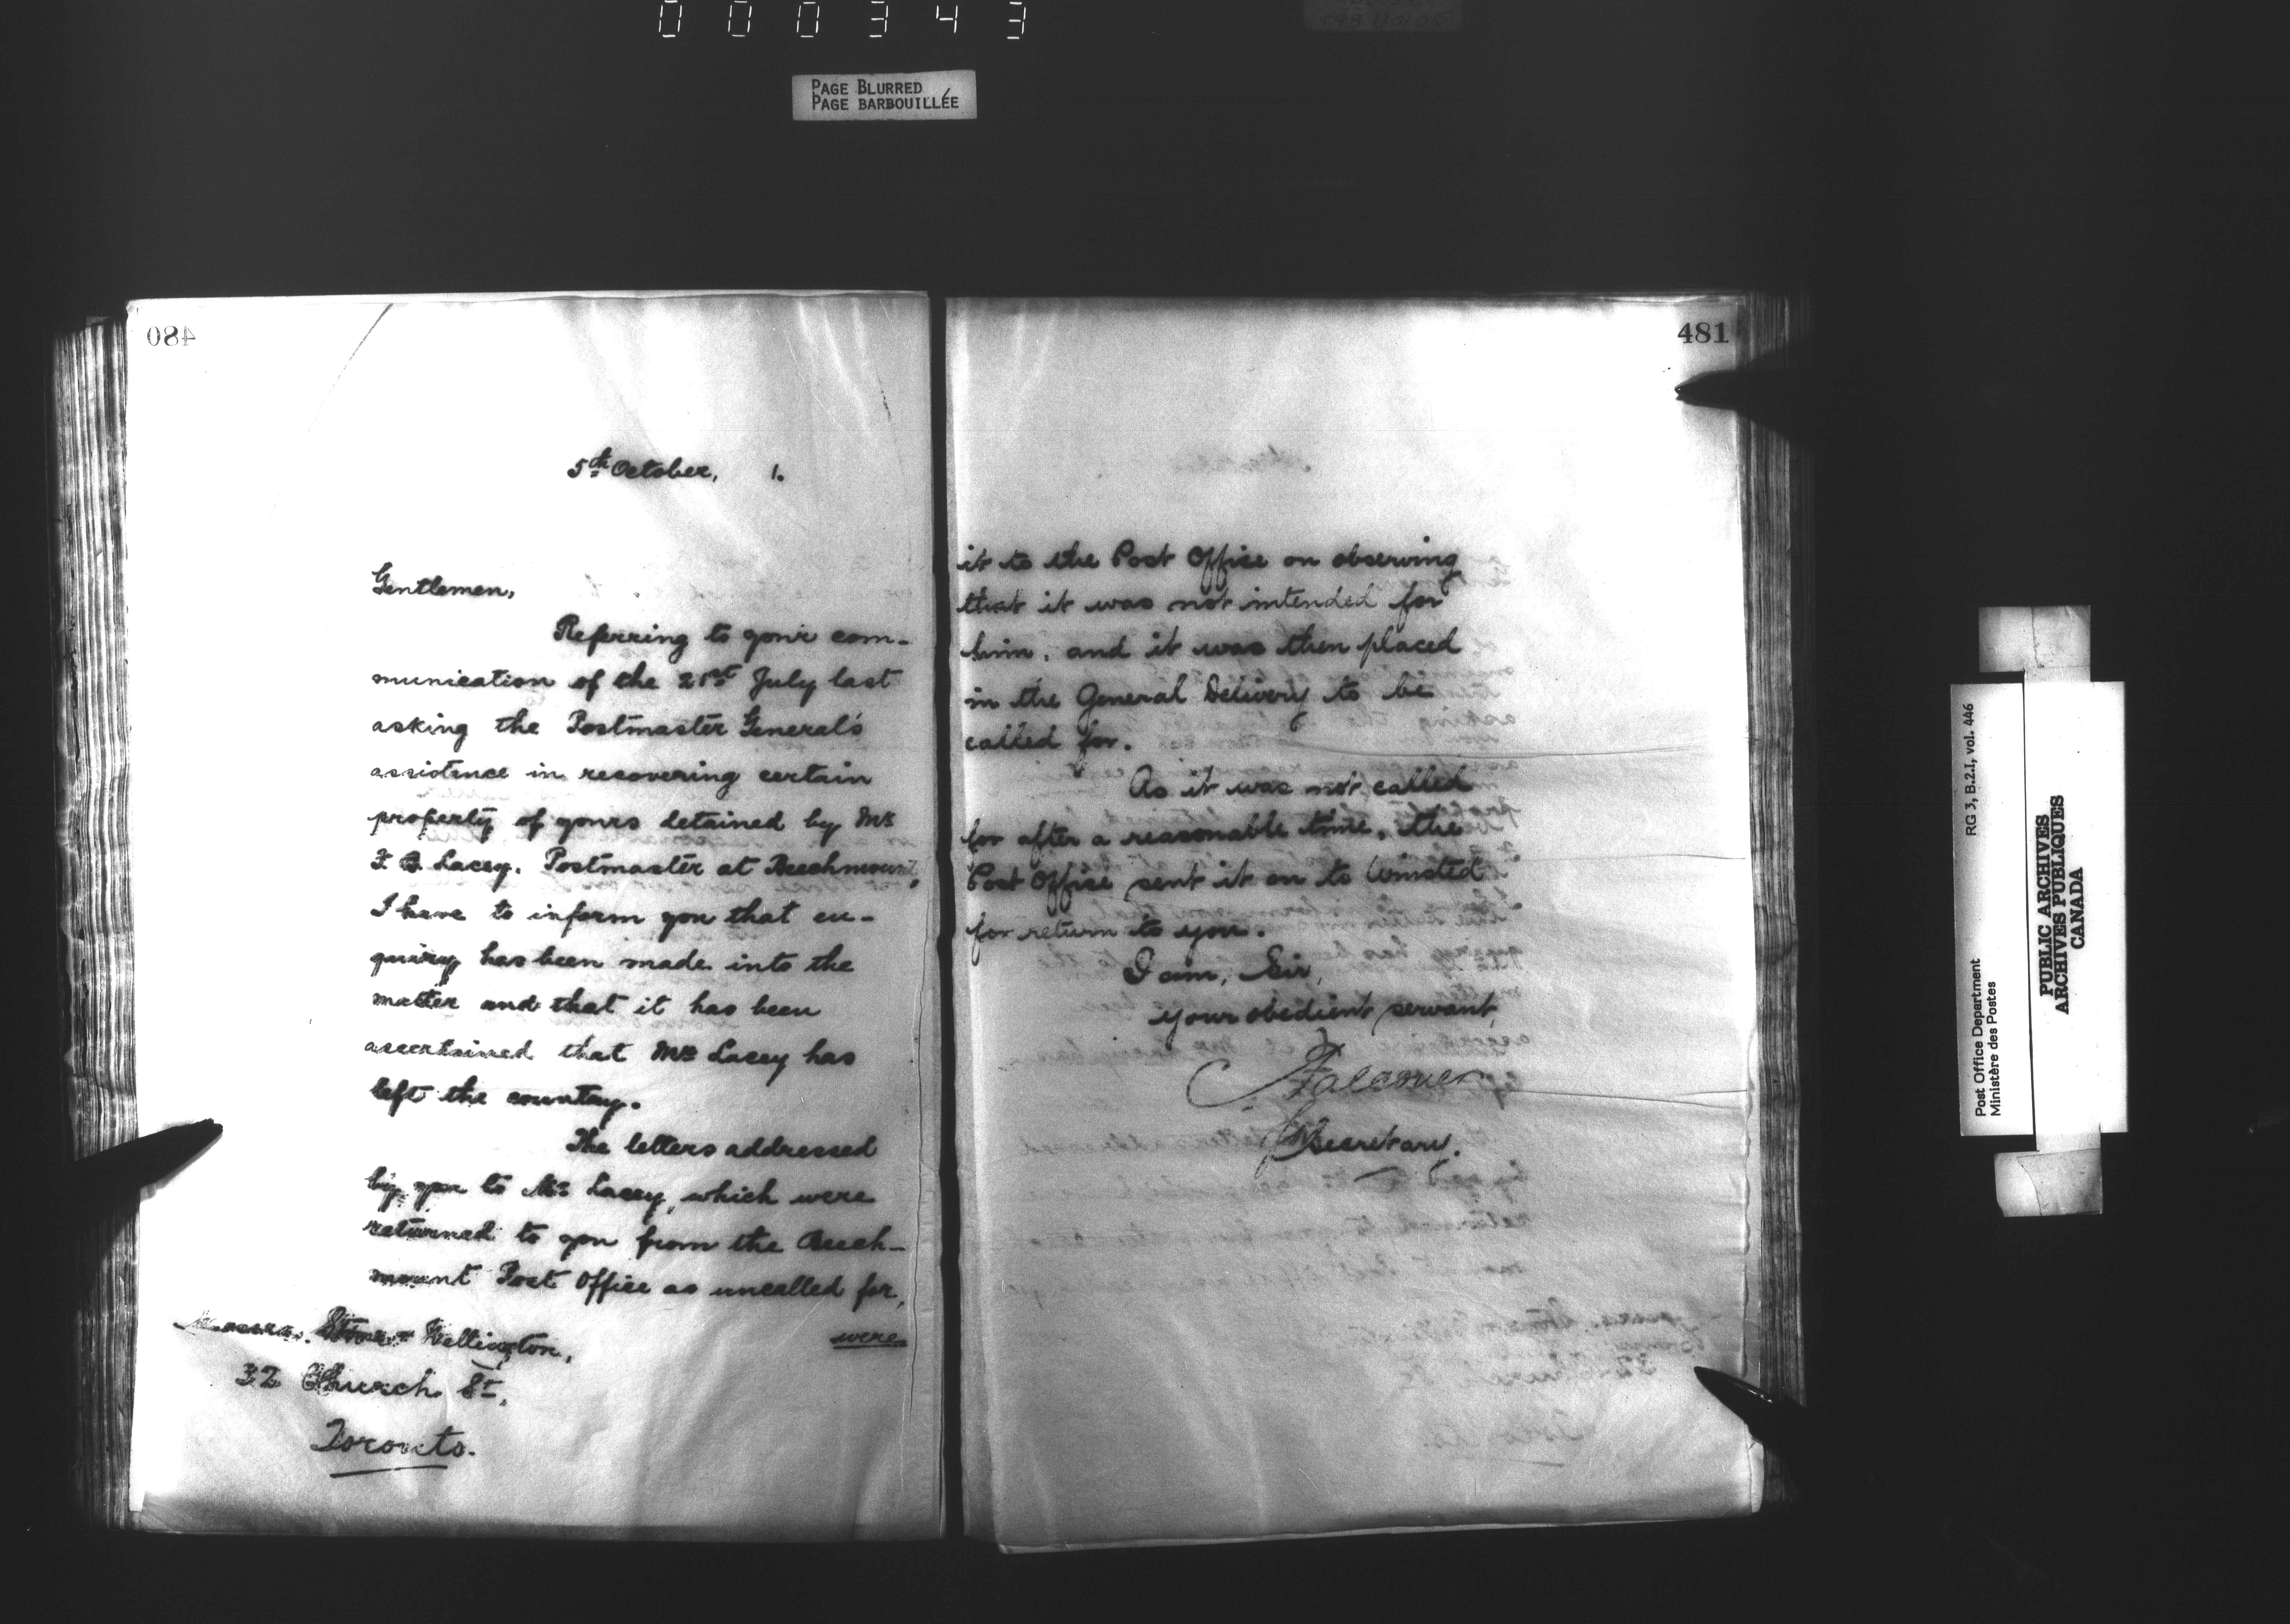 000343
PAGE BLURRED
PAGE BARBOUILLÉE
480
5th October, 1.
Gentlemen,
Referring to your com-
munication of the 21st July last
asking the Postmaster General's
assistance in recovering certain
property of yours detained by Mr
F. B. Lacey, Postmaster at Beechmount,
I have to inform you that en-
quiry has been made into the
matter and that it has been
ascertained that Mr Lacey has
left the country.
The letters addressed
by you to Mr Lacey, which were
returned to you from the Beech-
mount Post Office as uncalled for,
were
Messrs. Wellington,
32 Church St,
Toronto.
481
it to the Post Office on observing
that it was not intended for
him, and it was then placed
in the General Delivery to be
called for.
As it was not called
for after a reasonable time, the
Post Office sent it on to Winsted
for return to you.
I am, Sir,
Your obedient servant,
Secretary.
RG 3, B.2.I, vol. 446
Post Office Department
Ministère des Postes
PUBLIC ARCHIVES
ARCHIVES PUBLIQUES
CANADA